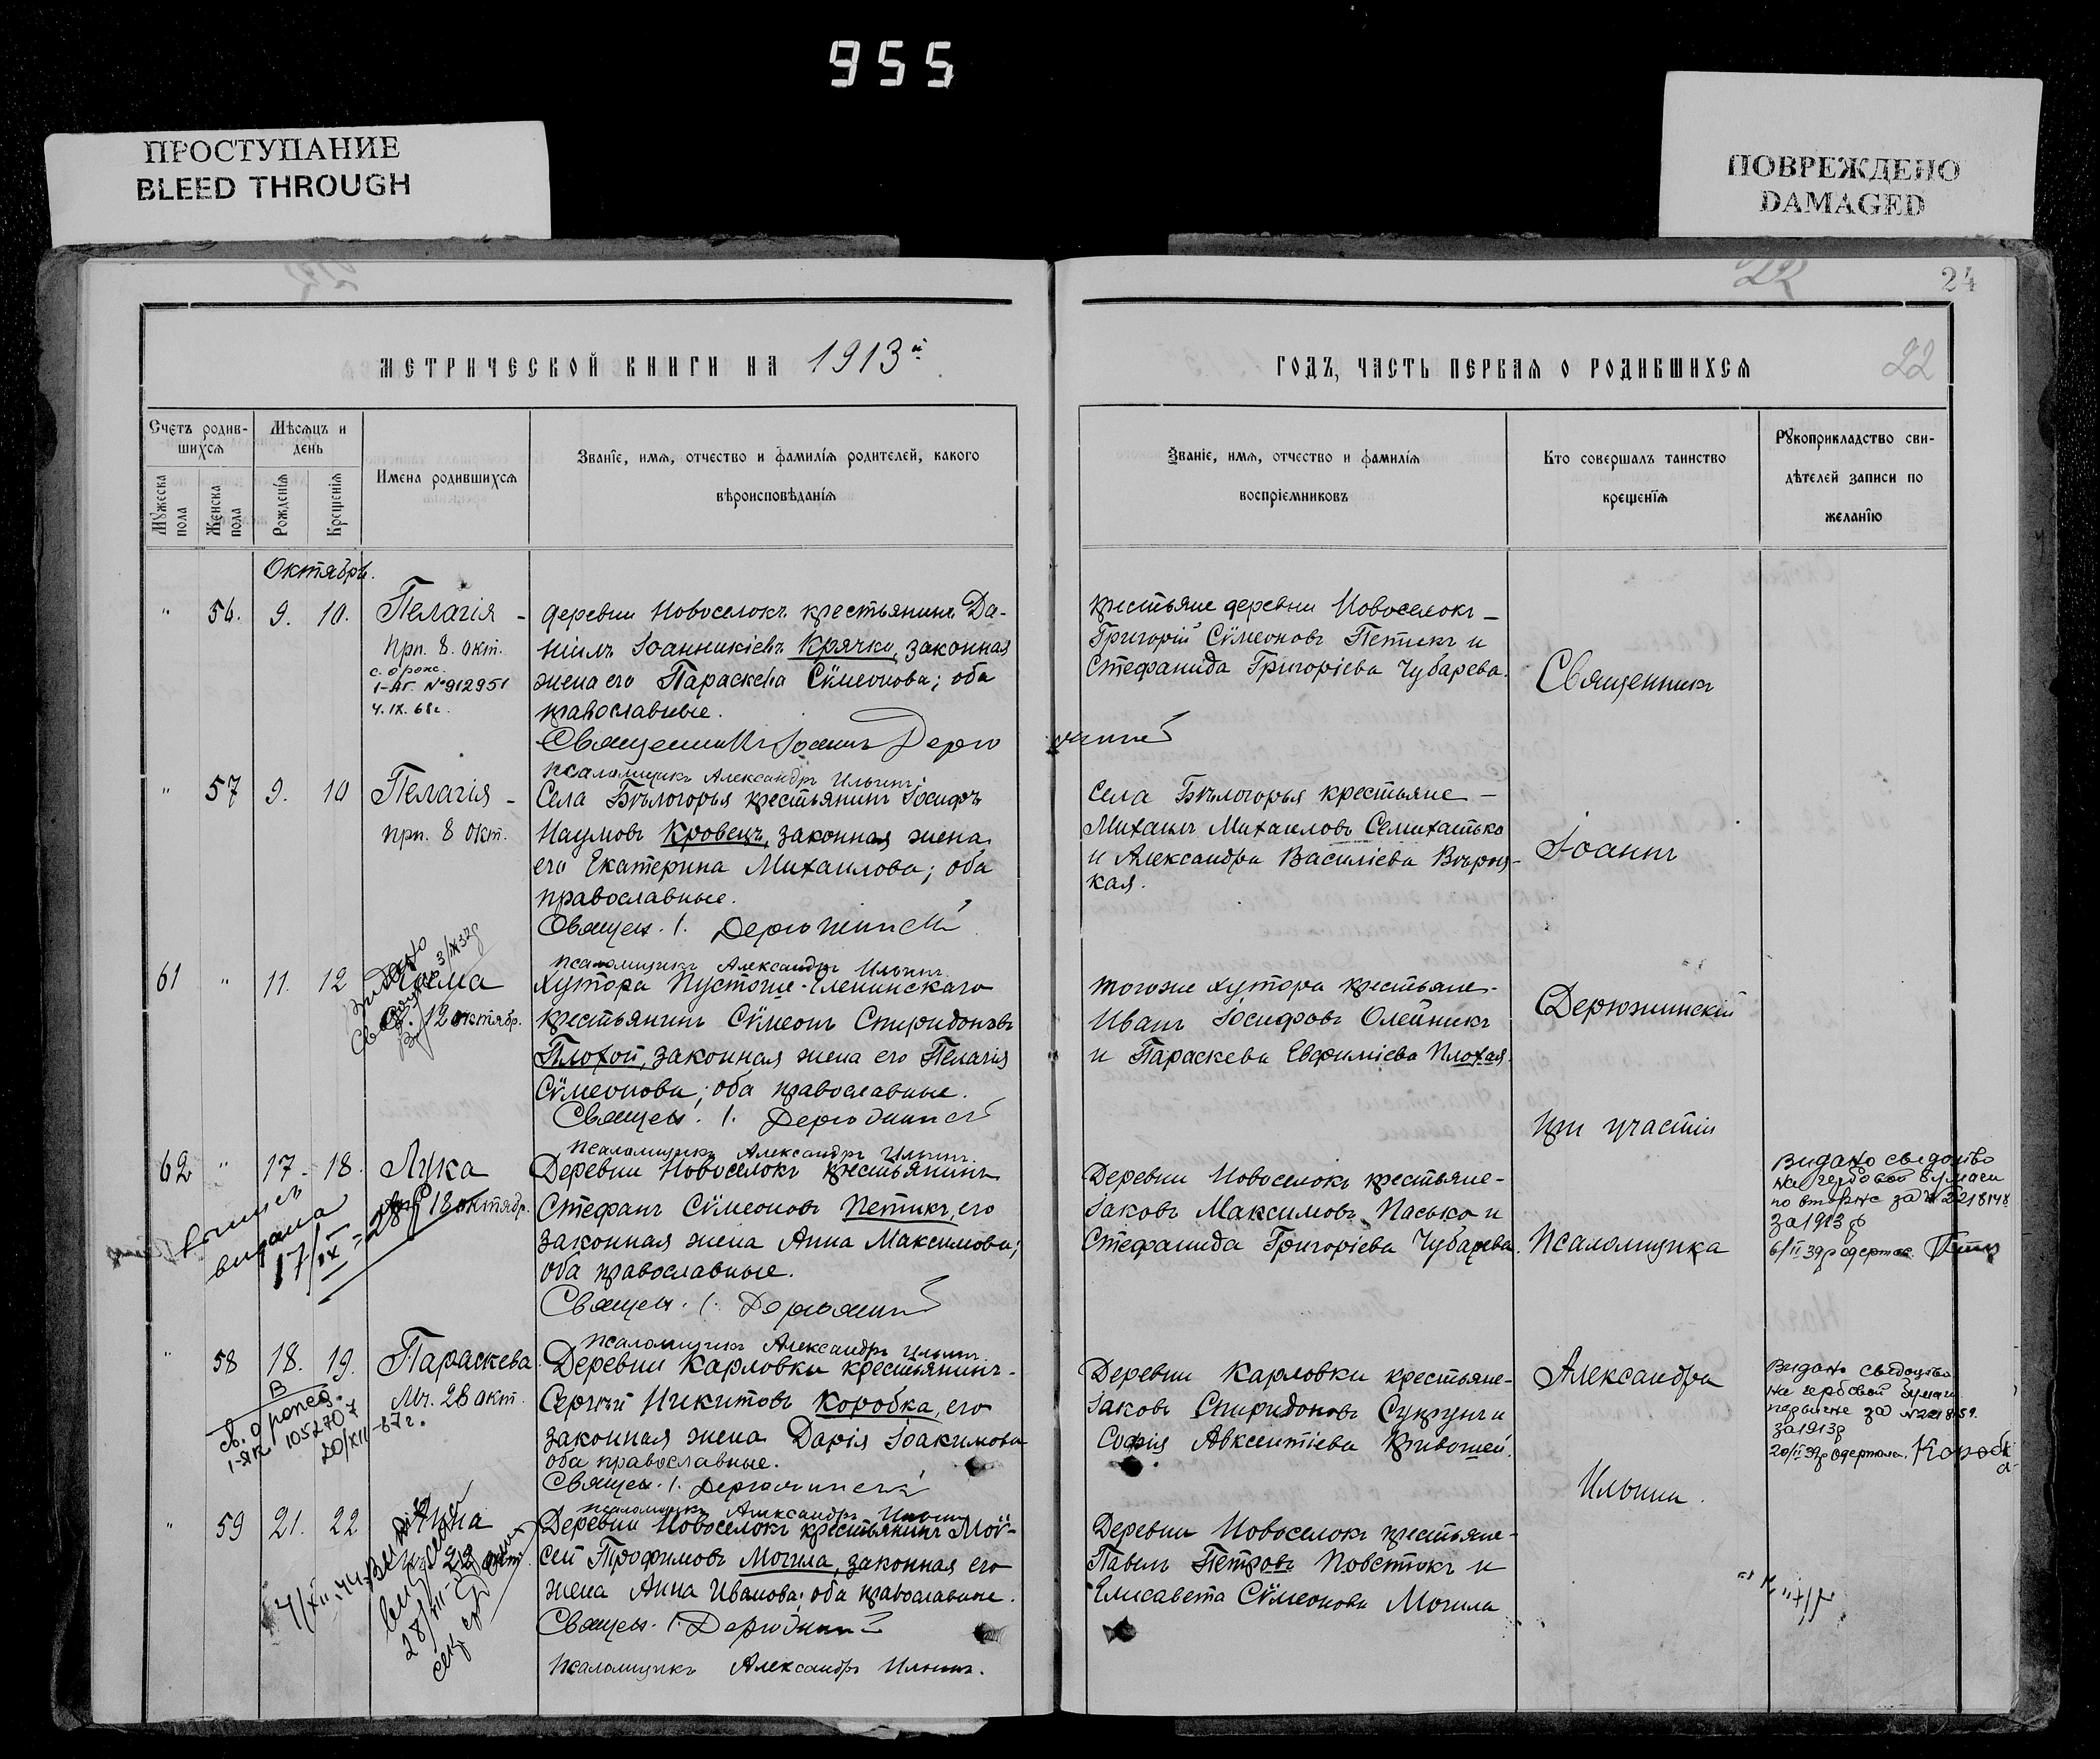 955
ПРОСТУПАНИЕ
BLEED THROUGH
ПОВРЕЖДЕНО
DAMAGED
22
24
МЕТРИЧЕСКОЙ КНИГИ НА 1913й
ГОДЪ, ЧАСТЬ ПЕРВАЯ О РОДИВШИХСЯ
22
Счетъ родив-
шихся
Мѣсяцъ и
день
Мужеска
пола
Женска
пола
Рожденія
Крещенія
Имена родившихся
Званіе, имя, отчество и фамилія родителей, какого
вѣроисповѣданія
Званіе, имя, отчество и фамилія
воспріемниковъ
Кто совершалъ таинство
крещенія
Рукоприкладство сви-
дѣтелей записи по
желанію
Октябрь.
" 56. 9. 10. Пелагія -
прп. 8. окт.
1-АГ. №912951
4.IX.68г.
деревни Новоселокъ крестьянинъ Да-
ніилъ Іоанникіевъ Крячко, законная
жена его Параскева Сѵмеонова; оба
православные.
Священникъ Іоаннъ Дерюжинскій
псаломщикъ Александръ Ильинъ.
крестьяне деревни Новоселокъ -
Григорій Сѵмеоновъ Петикъ и
Стефанида Григоріева Чубарева.
" 57 9. 10 Пелагія -
прп. 8 окт.
Села Бѣлогорья крестьянинъ Іосифъ
Наумовъ Кровецъ, законная жена
его Екатерина Михаилова; оба
православные.
Священ. І. Дерюжинскій
псаломщикъ Александръ Ильинъ.
Села Бѣлогорья крестьяне -
Михаилъ Михаиловъ Семихатько
и Александра Василіева
кая.
61 " 11. 12
12 октябр.
хутора Пустоше-Еленинскаго
крестьянинъ Сѵмеонъ Спиридоновъ
Плохой, законная жена его Пелагія
Сѵмеонова; оба православные.
Священ. І. Дерюжинскій
псаломщикъ Александръ Ильинъ.
тогоже хутора крестьяне-
Иванъ Іосифовъ Олейникъ
и Параскева Евфиміева Плохая.
62 " 17. 18. Лука
18 октябр.
выдана
17/IX
Деревни Новоселокъ крестьянинъ
Стефанъ Сѵмеоновъ Петикъ, его
законная жена Анна Максимова;
оба православные.
Священ. І. Дерюжинскій
псаломщикъ Александръ Ильинъ.
Деревни Новоселокъ крестьяне-
Іаковъ Максимовъ Пасько и
Стефанида Григоріева Чубарева.
Видано свідоцтво
на гербовой бумаги
по вторне за №2218148
за 1913 р
6/II 39р одержав
" 58 18. 19. Параскева
Мч. 28 окт.
1-ЯК 105270 7
20/XII-67г.
Деревни Карловки крестьянинъ-
Сергій Никитовъ Коробка, его
законная жена Дарія Іоакимова
оба православные.
Священ. І. Дерюжинскій
псаломщикъ Александръ Ильинъ
Деревни Карловки крестьяне-
Іаковъ Спиридоновъ Супрунъ и
Софія Авксентіева Кривошей.
Видано свідоцтво
на гербовой бумаги
за 1913р
20/II 39р одержала. Коробка
" 59 21. 22
Деревни Новоселокъ крестьянинъ Мой-
сей Трофимовъ Могила, законная его
жена Анна Иванова; оба православные.
Священ. І. Дерюжинскій
псаломщикъ Александръ Ильинъ.
Деревни Новоселокъ крестьяне-
Павелъ Петровъ Повстюкъ и
Елисавета Сѵмеонова Могила
Священникъ
Іоаннъ
Дерюжинскій
при участіи
Псаломщика
Александра
Ильина.